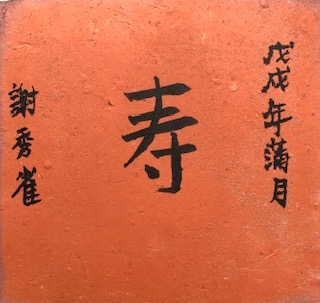 戊戌年蒲月
寿
謝秀雀